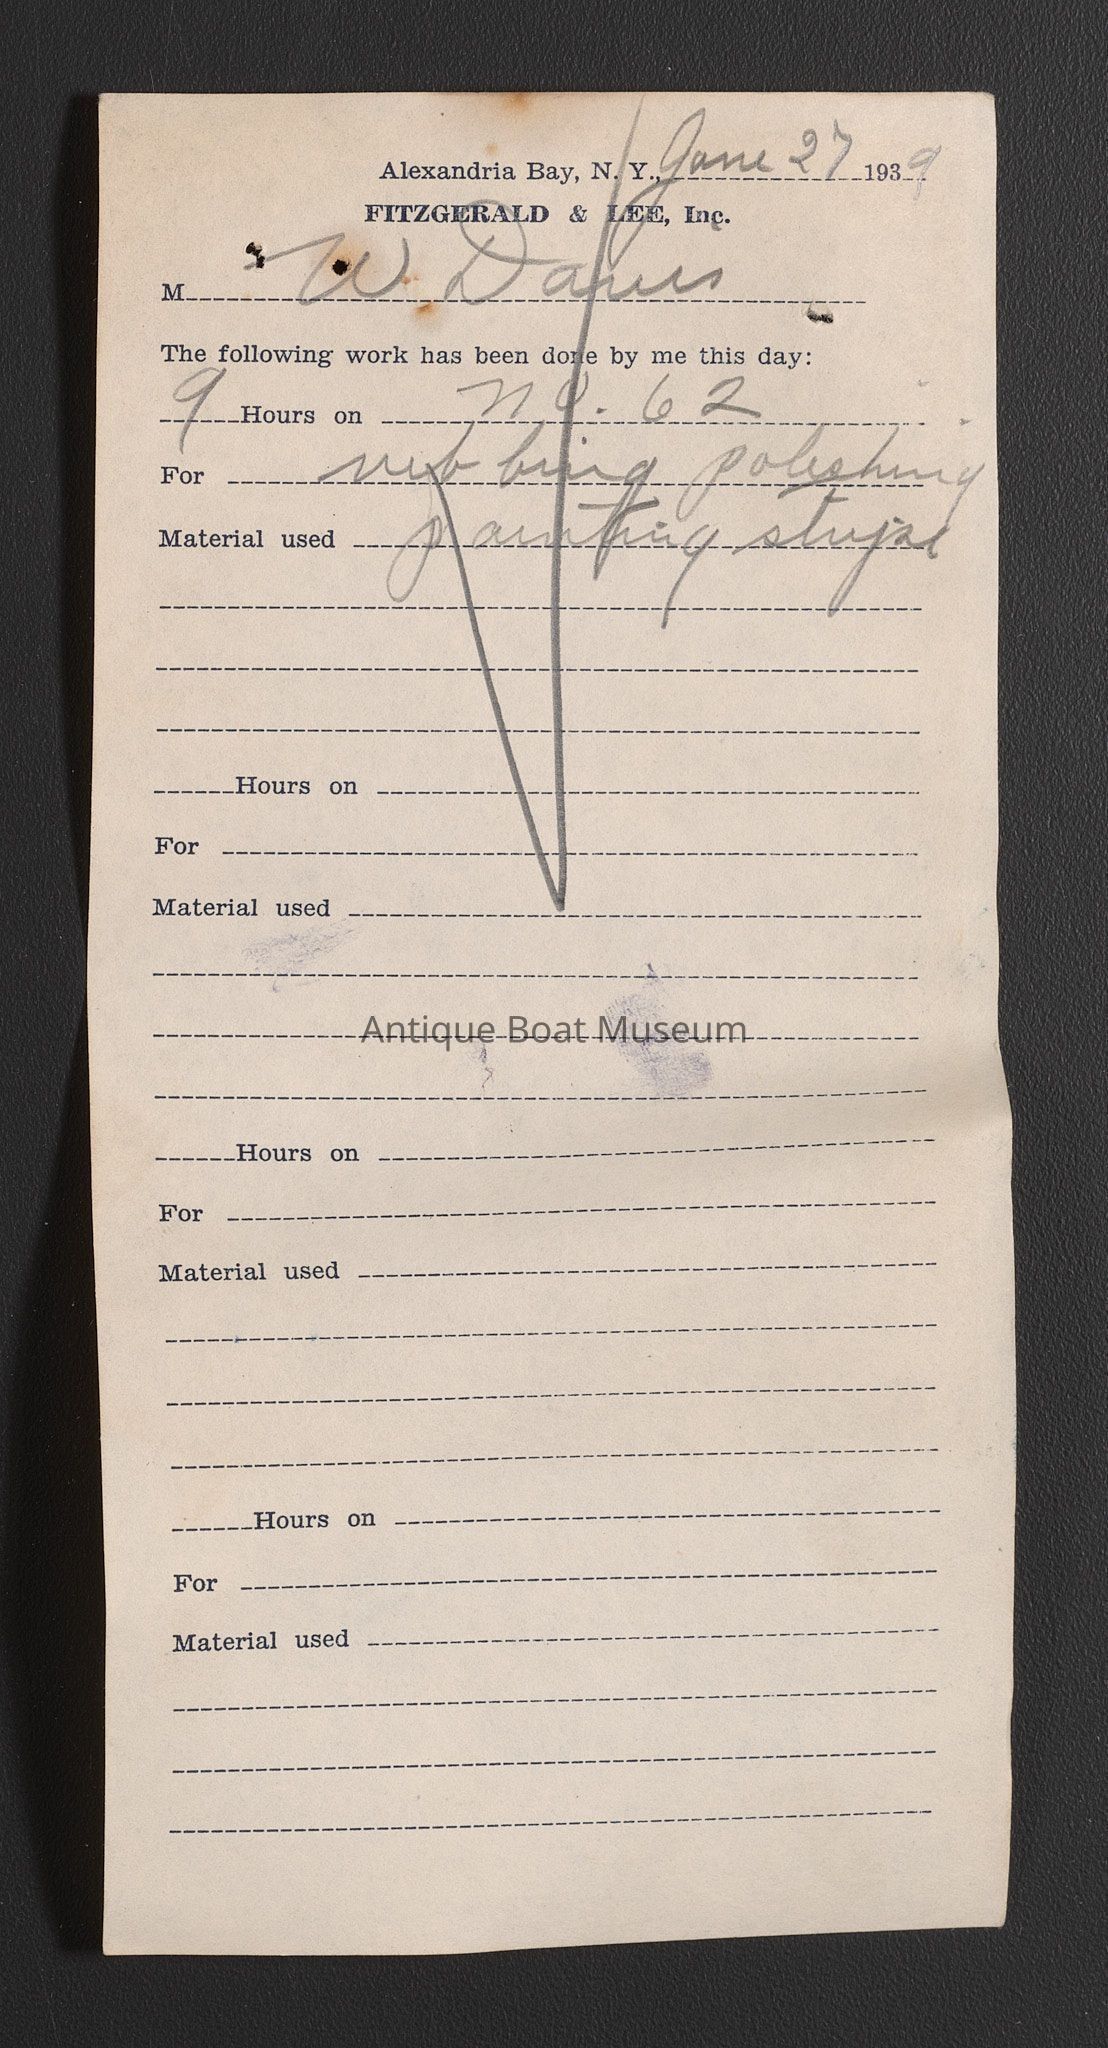 Alexandria Bay, N. Y., June 27 1939
FITZGERALD & LEE, Inc.
M W Davis
The following work has been done by me this day:
9 Hours on no. 62
For rubbing polishing
Material used painting stripe
Hours on
For
Material used
Antique Boat Museum
Hours on
For
Material used
Hours on
For
Material used